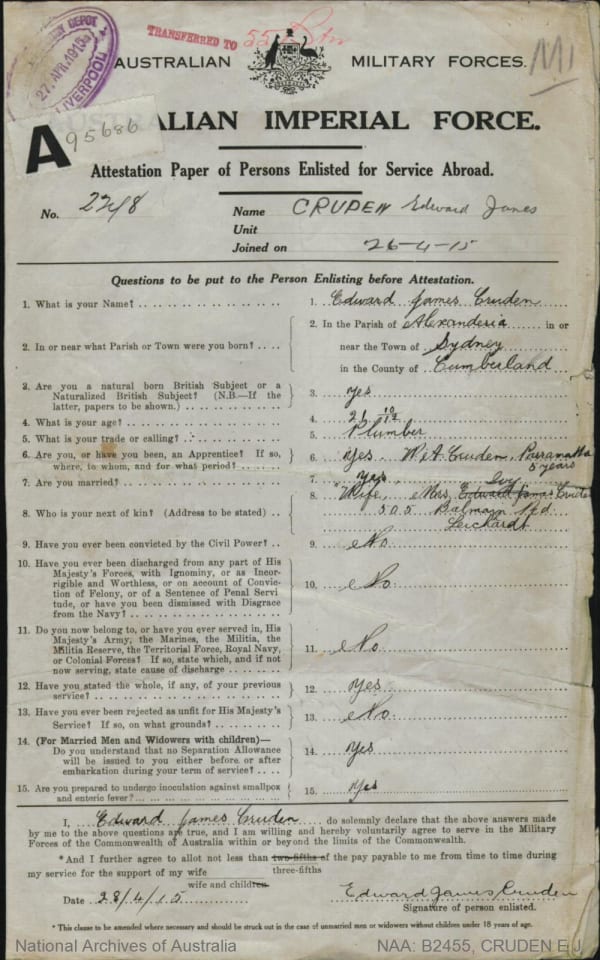 TRANSFERRED TO 55 Btn
27 APR 1915
LIVERPOOL
DEPOT
M1
AUSTRALIAN MILITARY FORCES.
AUSTRALIAN IMPERIAL FORCE.
A 95686
Attestation Paper of Persons Enlisted for Service Abroad.
No. 2248 Name CRUDEN Edward James
Unit
Joined on 26-4-15
Questions to be put to the Person Enlisting before Attestation.
1. What is your Name? 1. Edward James Cruden
2. In or near what Parish or Town were you born? 2. In the Parish of Alexanderia in or
near the Town of Sydney
in the County of Cumberland
3. Are you a natural born British Subject or a
Naturalized British Subject? (N.B.—If the
latter, papers to be shown.) 3. yes
4. What is your age? 4. 26 10/12
5. What is your trade or calling? 5. Plumber
6. Are you, or have you been, an Apprentice? If so,
where, to whom, and for what period? 6. yes. W.A. Cruden, Parramatta
5 years
7. Are you married? 7. yes
8. Who is your next of kin? (Address to be stated) 8. Wife, Mrs, Ivy Edward James Cruden
505 Balmain Rd
Leichardt
9. Have you ever been convicted by the Civil Power? 9. No
10. Have you ever been discharged from any part of His
Majesty's Forces, with Ignominy, or as Incor-
rigible and Worthless, or on account of Convic-
tion of Felony, or of a Sentence of Penal Servi
tude, or have you been dismissed with Disgrace
from the Navy? 10. No
11. Do you now belong to, or have you ever served in, His
Majesty's Army, the Marines, the Militia, the
Militia Reserve, the Territorial Force, Royal Navy,
or Colonial Forces? If so, state which, and if not
now serving, state cause of discharge 11. No
12. Have you stated the whole, if any, of your previous
service? 12. yes
13. Have you ever been rejected as unfit for His Majesty's
Service? If so, on what grounds? 13. No
14. (For Married Men and Widowers with children)—
Do you understand that no Separation Allowance
will be issued to you either before or after
embarkation during your term of service? 14. yes
15. Are you prepared to undergo inoculation against smallpox
and enteric fever? 15. yes
I, Edward James Cruden do solemnly declare that the above answers made
by me to the above questions are true, and I am willing and hereby voluntarily agree to serve in the Military
Forces of the Commonwealth of Australia within or beyond the limits of the Commonwealth.
*And I further agree to allot not less than two-fifths of the pay payable to me from time to time during
three-fifths
my service for the support of my wife
wife and children.
Date 28/4/15 Edward James Cruden
Signature of person enlisted.
* This clause to be amended where necessary and should be struck out in the case of unmarried men or widowers without children under 18 years of age.
National Archives of Australia NAA: B2455, CRUDEN E J